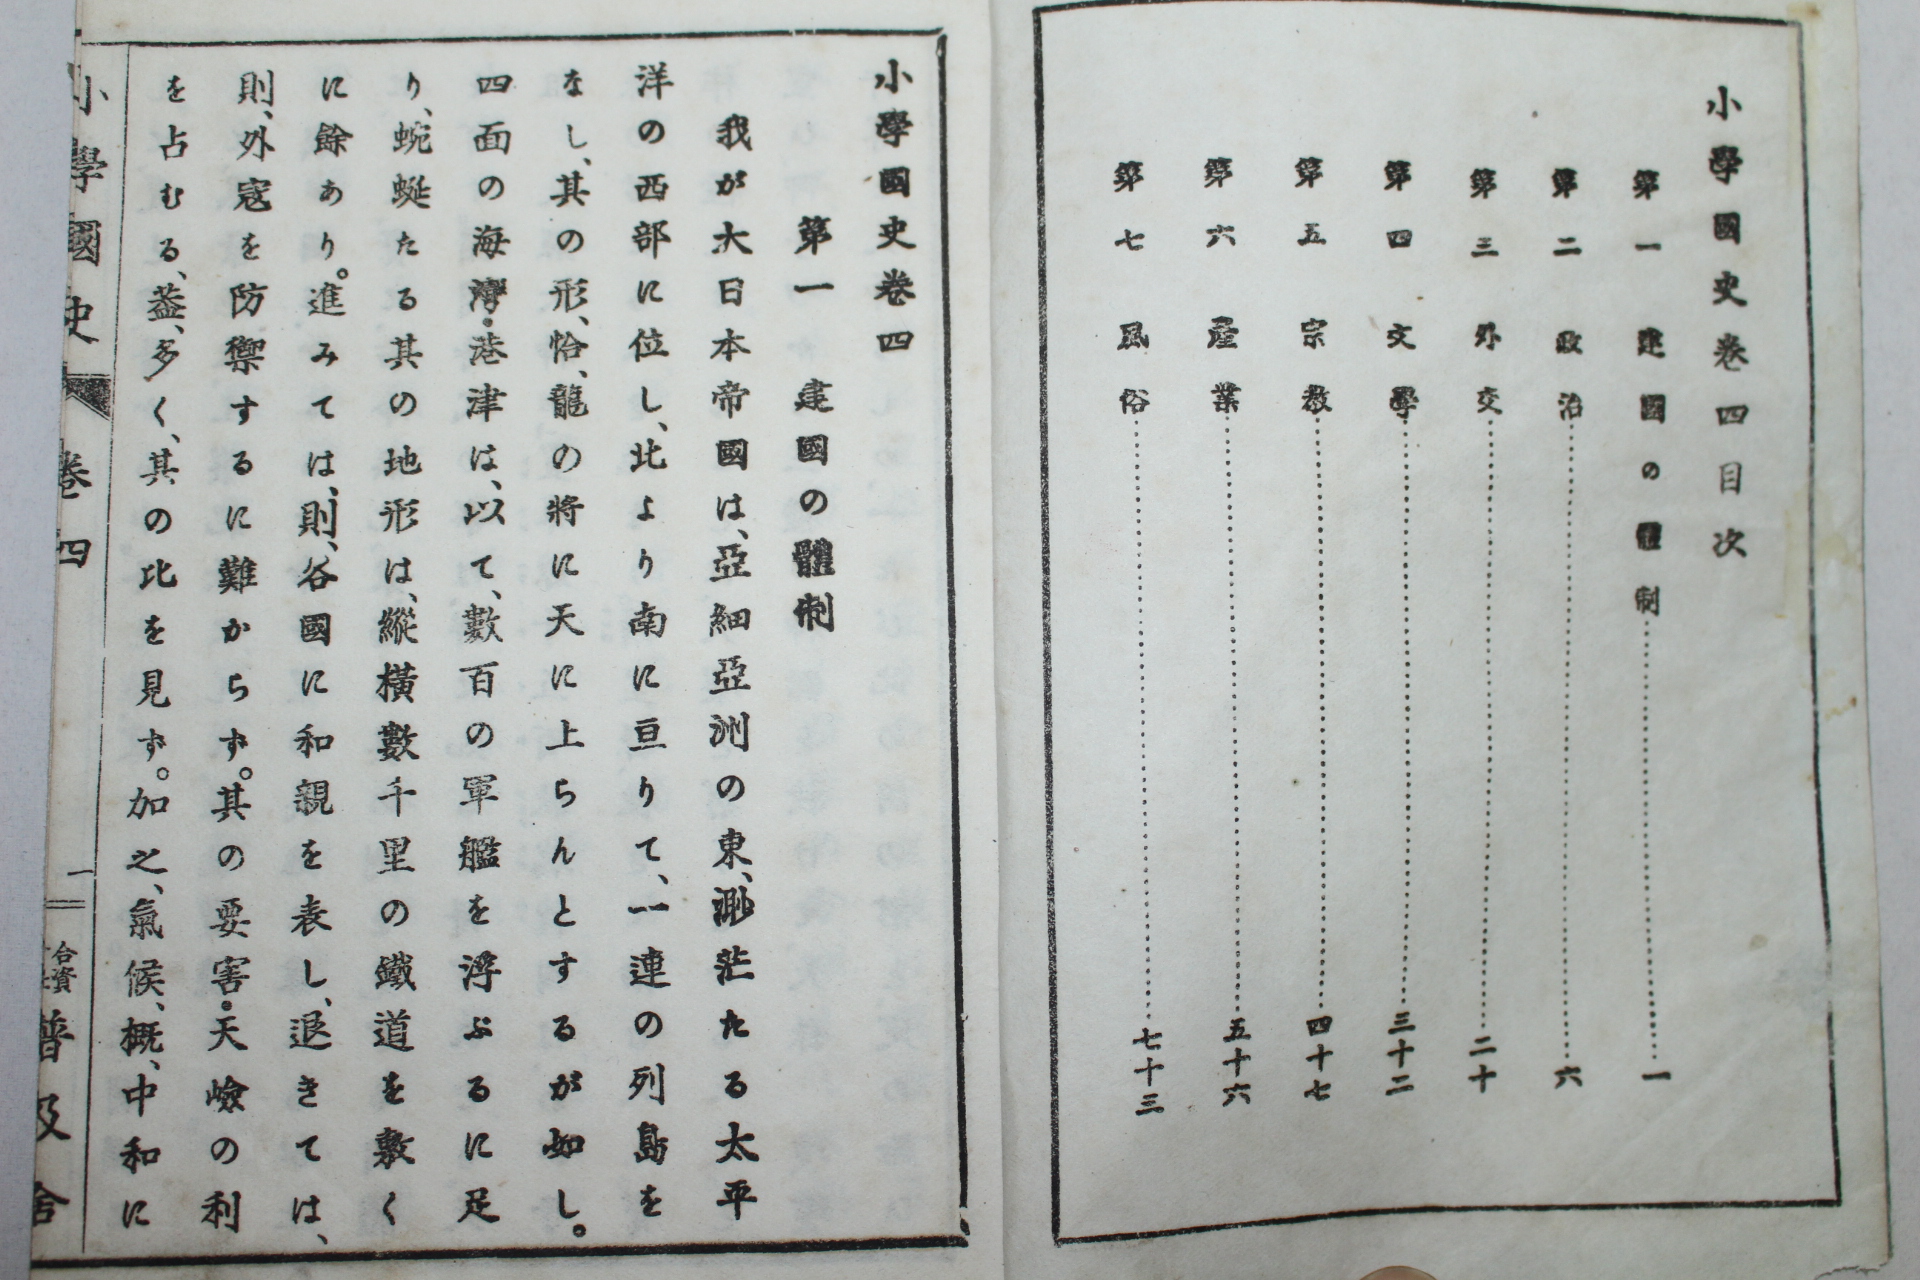 小學國史卷四目次
第一 建國の體制……一
第二 政治……六
第三 外交……二十
第四 文學……三十二
第五 宗教……四十七
第六 產業……五十六
第七 風俗……七十三
小學國史卷四
第一 建國の體制
我が大日本帝國は、亞細亞洲の東、渺茫たる太平
洋の西部に位し、北より南に亘りて、一連の列島を
なし、其の形、恰、龍の將に天に上らんとするが如し。
四面の海灣・港津は、以て、數百の軍艦を浮ぶるに足
り、蜿蜒たる其の地形は、縱橫數千里の鐵道を敷く
に餘あり。進みては、則、各國に和親を表し、退きては、
則、外寇を防禦するに難からず。其の要害・天嶮の利
を占むる、蓋、多く、其の比を見ず。加之、氣候、概、中和に
小學國史 卷四 一 合資 普及舍